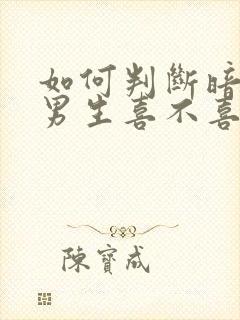 如何判斷暗
男生喜不喜
陳寶成